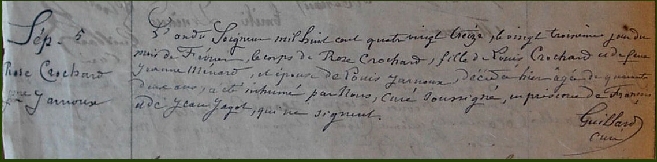 Sép. 5
Rose Crochard
Jarnoux
L'an du Seigneur mil huit cent quatre vingt treize, le vingt troisième jour du
mois de Février, le corps de Rose Crochard, fille de Louis Crochard et de feue
Jeanne Minard, et épouse de Louis Jarnoux, décédée hier agée de quarante
deux ans, a été inhumé par Nous, curé soussigné, en présence de François
et de Jean Jagot, qui ne signent.
Guillard
Curé